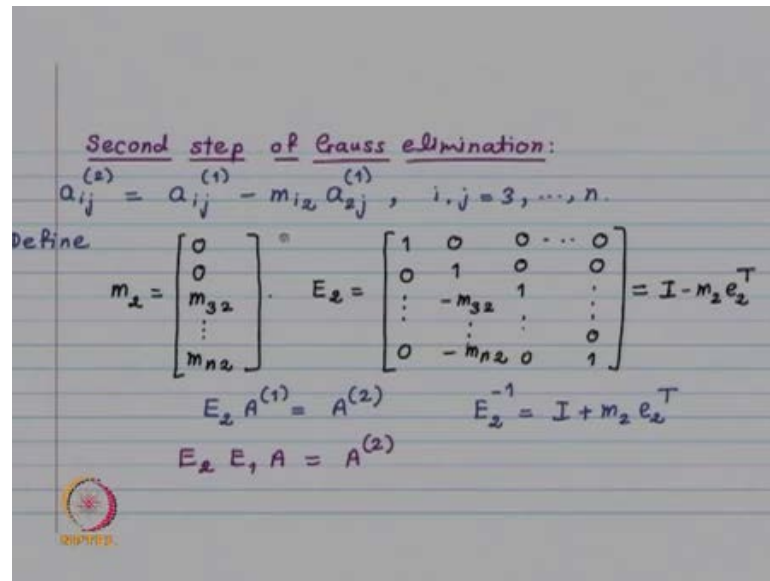 Second step of Gauss elimination:
a_{ij}^{(2)} = a_{ij}^{(1)} - m_{i2} a_{2j}^{(1)}, i, j = 3, ..., n.
Define
m_2 = [0 0 m_{32} ⋮ m_{n2}]. E_2 = [1 0 0 ... 0; 0 1 0 0; ⋮ -m_{32} 1 ⋮; ⋮ ⋮ 0; 0 -m_{n2} 0 1] = I - m_2 e_2^T
E_2 A^{(1)} = A^{(2)} E_2^{-1} = I + m_2 e_2^T
E_2 E_1 A = A^{(2)}
NPTEL